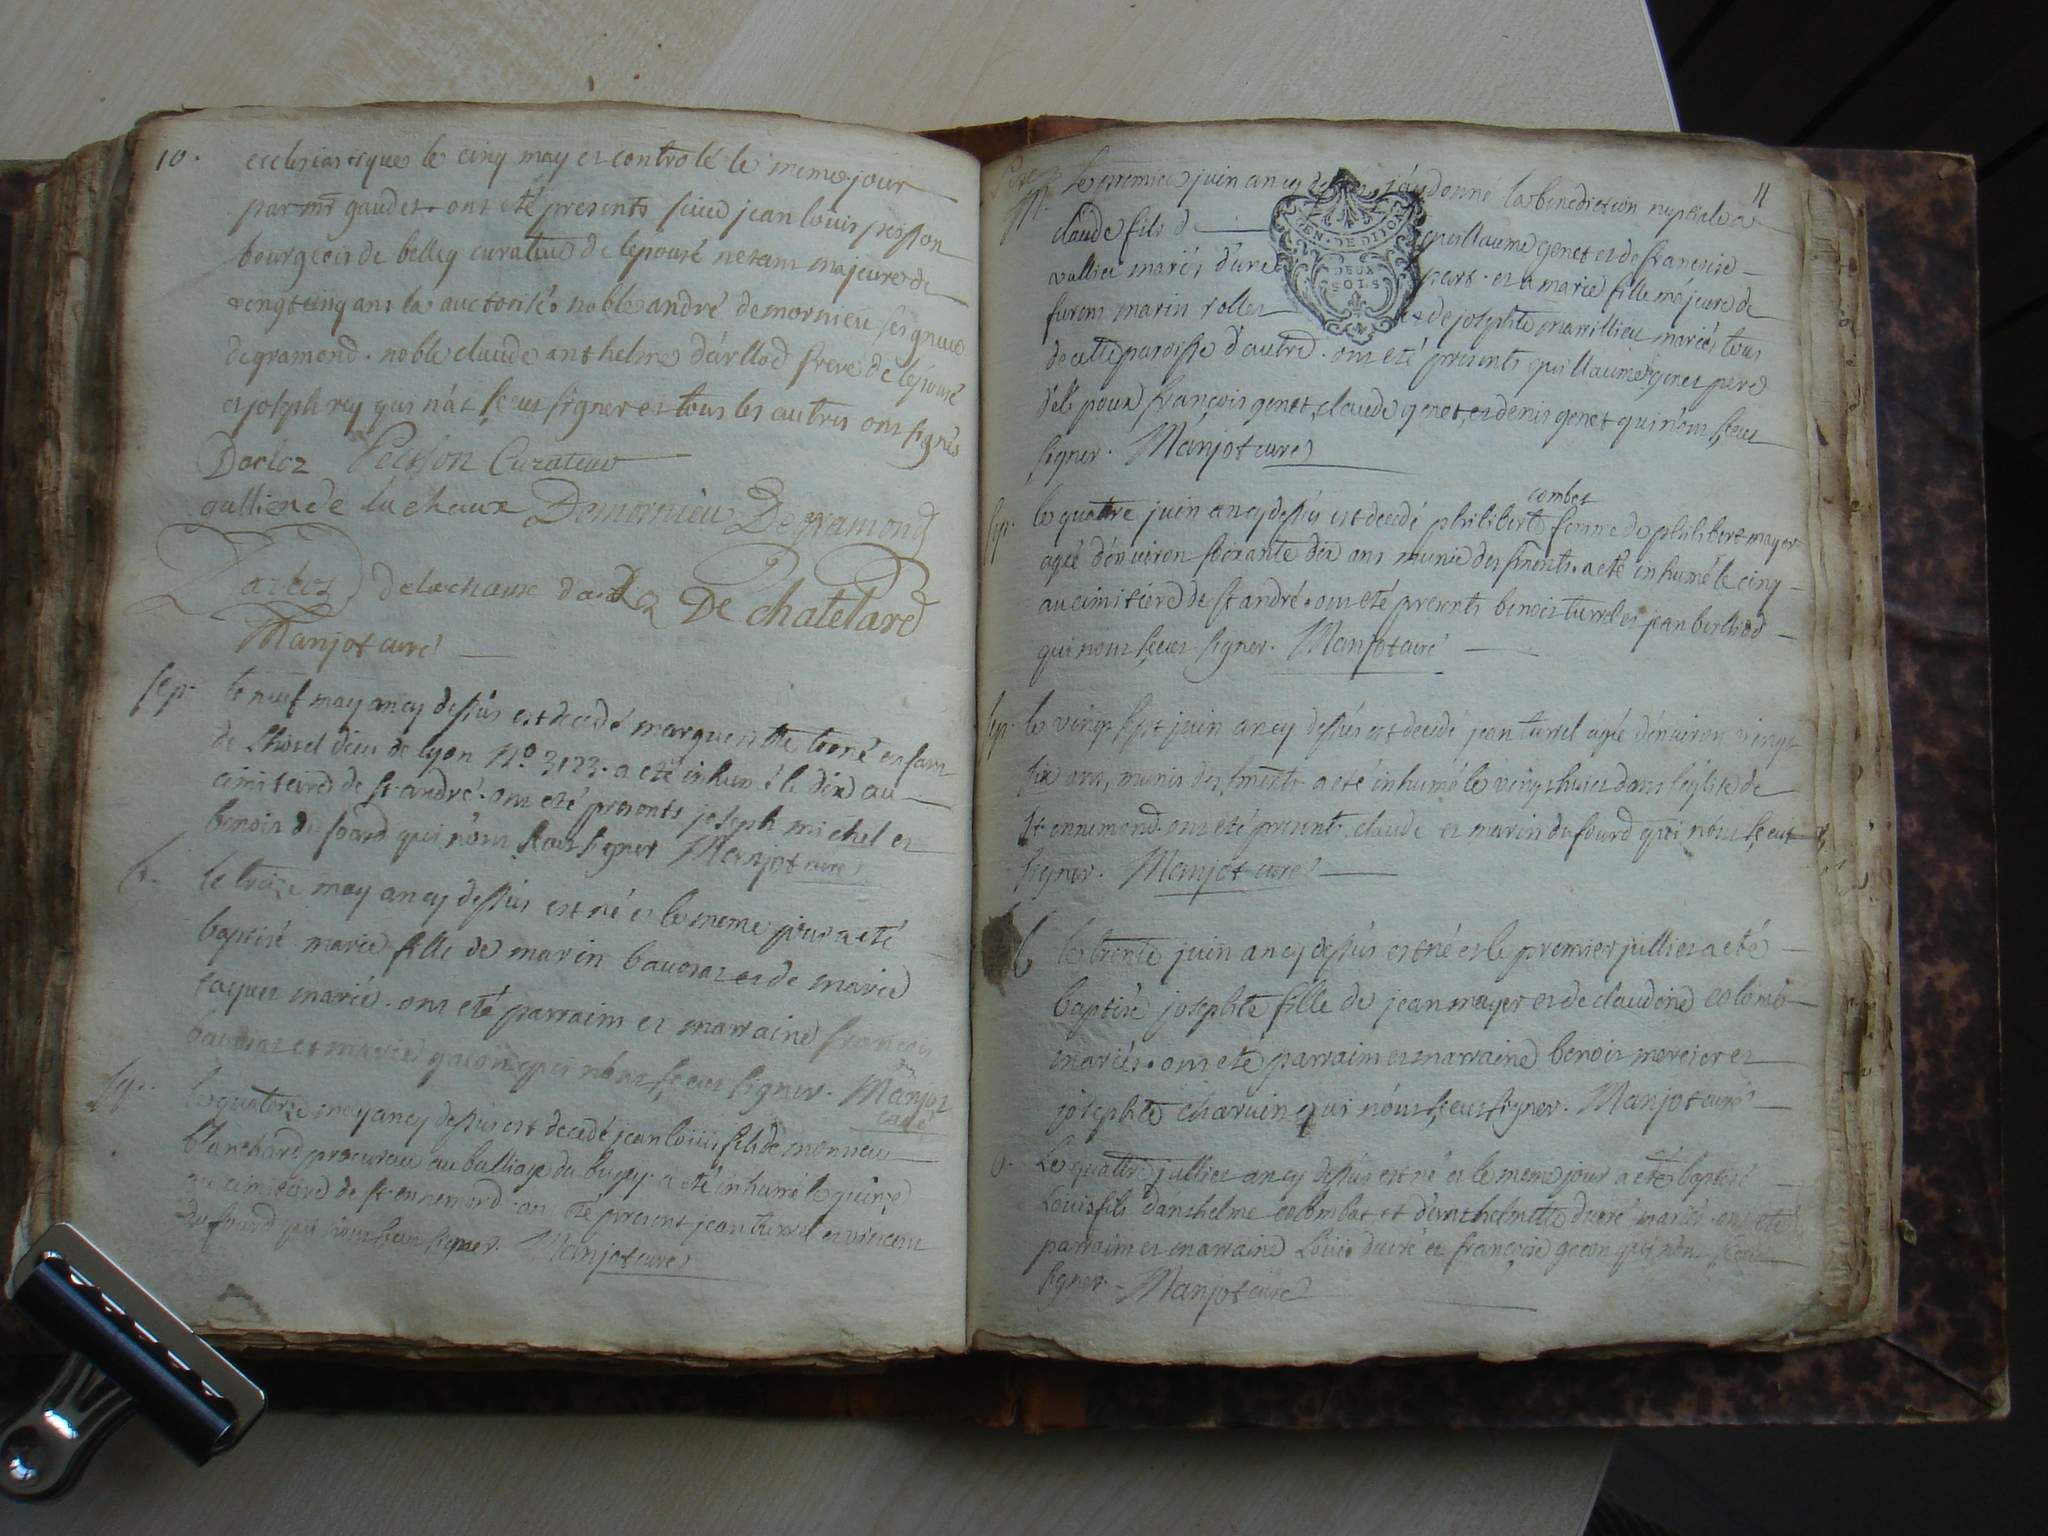 10.
ecclesiastique le cinq may et controlé le meme jour
par mr gaudet. ont eté presents sieur jean louis peysson
bourgeois de belley curateur de lepouse netant majeure de
vengtcinq ans la auctorisé. noble andré demornieu seigneur
de gramond. noble claude anthelme dárllod frere de lepouse
et joseph rey qui nát sceut signer et tous les autres ont signés
Darloz Peisson Curateur
gallien de la chaux Demornieu De gramond
Darloz delachaux darloz De chatelard
Manjot curé
sep. le neuf may an cy dessus est decedé margueritte trené enfant
de lhotel dieu de lyon No 3123. a eté inhumé le dix au
cimitiere de st andré. ont eté presents joseph michel et
benoit dufourd qui nónt sceut signer Manjot curé
b. le treize may an cy dessus est né et le meme jour a eté
baptisé marie fille de marin baudrat et de marie
taquet marié. ont eté parraim et marraine francois
baudrat et marie gacon qui nónt sceut signer. Manjot
curé
sep. le quatorze may an cy dessus est decedé jean loüis fils de monsieur
blanchard procureur au balliage du bugey. a eté inhumé le quinze
au cimitiere de st ennemond. ont eté present jean turrel et vincent
dufourd qui nónt sceut signer. Manjot curé
11
le premier juin an cy jáy donné la benediction nuptiale a
claude fils de guillaume genet et de francoise
vallier mariés dúne part. et a marie fille majeure de
furent marin rollet et de josephte marillieu mariés tous
de cette paroisse dáutre. ont eté presents guillaume genet pere
de lépoux françois genet, claude genet, et denis genet qui nónt sceut
signer. Manjot curé
combet
sep. le quatre juin an cy dessus est decedé philiberte femme de philibert mayer
agée dénviron soixante dix ans munie des sments. a eté inhumé le cinq
au cimitiere de st andré. ont eté presents benoit turrel et jean berlliod
qui nont sceut signer. Manjot curé
sep. le vingt sept juin an cy dessus est decedé jean turrel agée dénviron vingt
six ans, munis des sments. a eté inhumé le vingt huict dans léglise de
st ennemond. ont eté presents claude et marin dufourd qui nónt sceut
signer. Manjot curé
b le trente juin an cy dessus est né et le premier julliet a eté
baptisé josephte fille de jean mayer et de claudine colomb
mariés. ont eté parraim et marraine benoit mercier et
josephte charvin qui nónt sceut signer. Manjot curé
b. le quatre julliet an cy dessus est né et le meme jour a eté baptisé
Louis fils dánthelme colombat et dánthelmette ducré mariés. ont eté
parraim et marraine Louis ducré et françoise gacon qui nónt sceut
signer. Manjot curé
GEN. DE DIJON
DEUX
SOLS